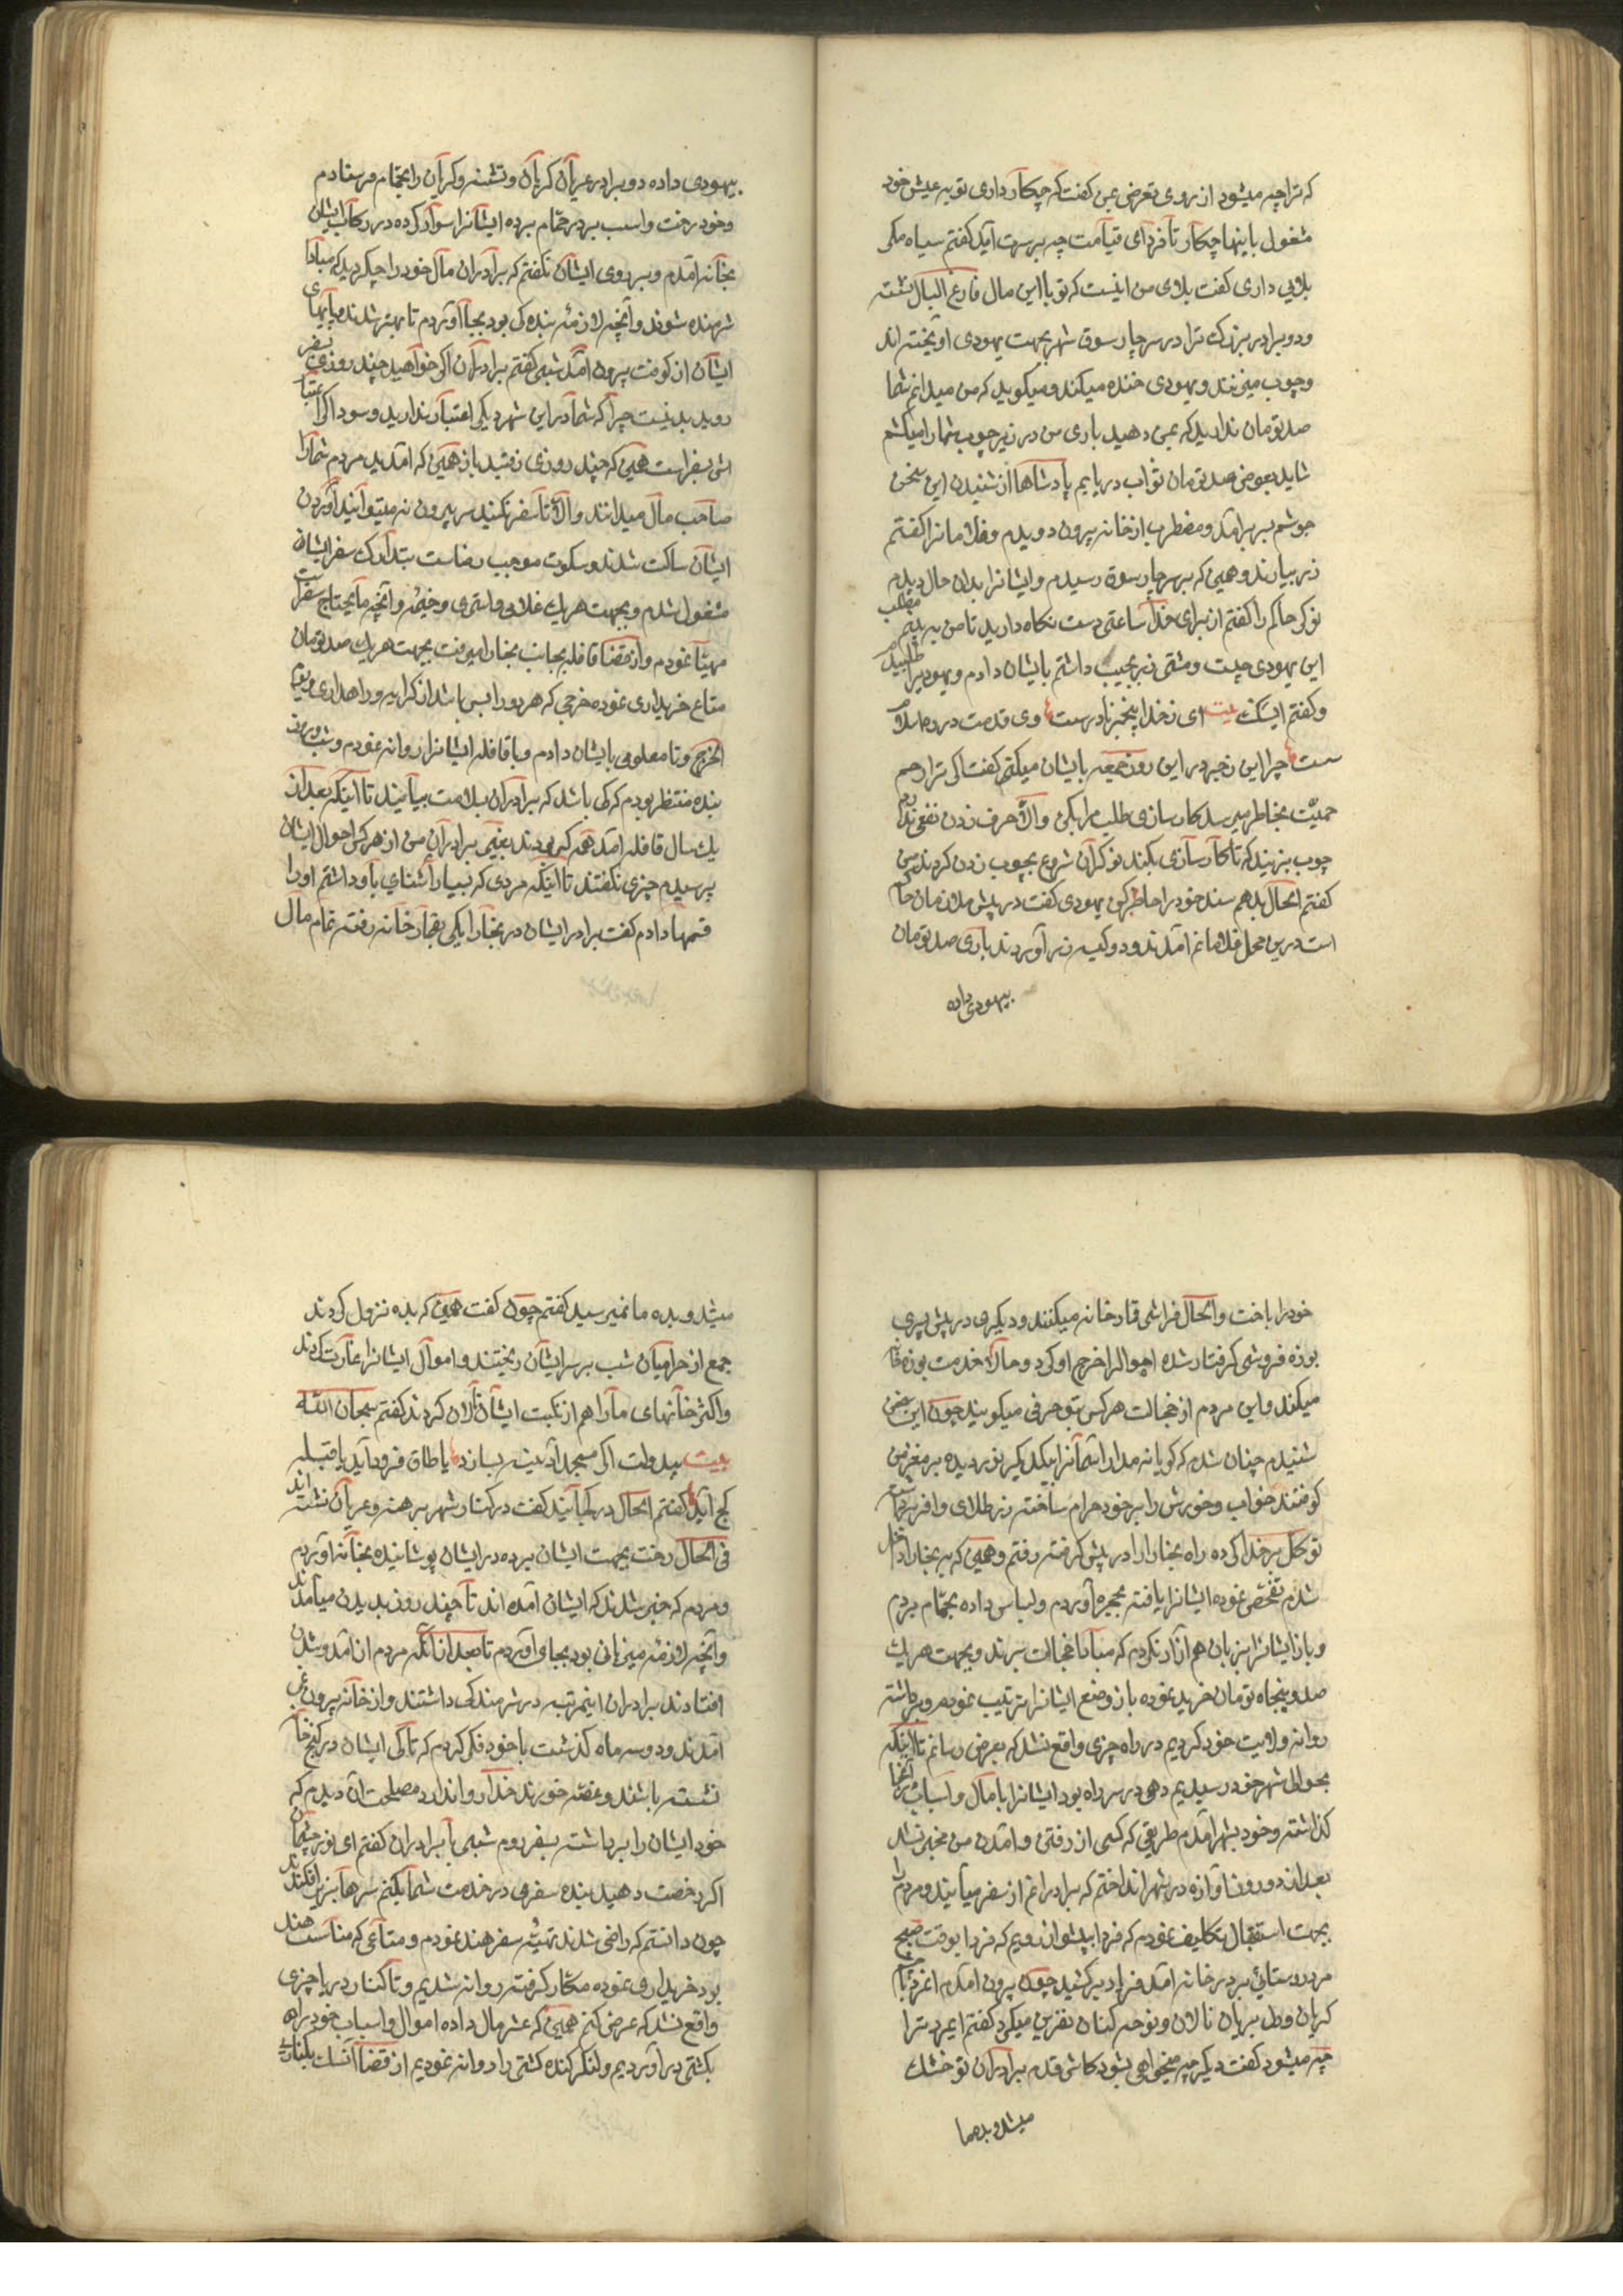 که ترا چه میشود از روی تعرض بمن گفت که چکار داری تو بعیش خود
مشغول باینها چکار تا فردای قیامت چه بر سرت آید گفتم سیاه مکر
بلایی داری گفت بلای من اینست که تو با این مال فارغ البال نشسته
و دو برادر بزرگ ترا در سر چار سوق شهر بجهت یهودی آویخته اند
و چوب میزنند و یهودی خنده میکند و میکوید که من میدانم شما
صد تومان ندارید که بمن دهید باری من در زیر چوب شما را میکشم
شاید بعوض صد تومان ثواب دریابم پادشاها از شنیدن این سخن
جوشم بسر برآمد و مضطرب از خانه بیرون دویدم و غلامانرا کفتم
زر بیارند و همین که بسر چار سوق رسیدم و ایشانرا بدان حال دیدم
نوکر حاکم را کفتم از برای خدا ساعتی دست نکاه دارید تا من به بینم مطلب
این یهودی چیست و مشتی زر بجیب داشتم بایشان دادم و یهودیرا طلبیدم
و کفتم ای سک بیت ای ز خدا بیخبر نادرست وی قدمت در ره اسلام
سست چرا این زجر در این روز جمعه بایشان میکنی کفت اکر ترا رحم
حمیت بخاطر میرسد کار سازی طلب مرا بکن والا حرف زدن نفعی ندارد
چوب بزنید که تا کار سازی بکند نوکران شروع بچوب زدن کردند من
کفتم الحال بدهم سند خود را حاظر کن یهودی کفت در پیش ملازمان حاکم
است درین محل غلامانم آمدند و دو کیسه زر آوردند باری صد تومان
بیهودی داده
بیهودی داده دو برادر عریان کریان و تشنه و کریان را بحمام فرستادم
و خود رخت و اسب بدر حمام برده ایشانرا سوار کرده در رکاب ایشان
بخانه آمدم و بروی ایشان نکفتم که برادران مال خود را چکردید که مبادا
شرمنده شوند و آنچه لازمهٔ بنده کی بود بجا آوردم تا بهتر شدند پایهای
ایشان از کوفت بیرون آمد شبی کفتم برادران اکر خواهید چند روزی سفر
روید بد نیست چرا که شما در این شهر دیکر اعتبار ندارید و سوداکر اعتبا
رش بسفر است همین که چند روزی رفتید باز همین که آمدید مردم شما را
صاحب مال میدانند والا تا سفر نکنید سر بیرون نه میتوانید آوردن
ایشان ساکت شدند و سکوت موجب رضاست بتدارک سفر ایشان
مشغول شدم و بجهت هر یک غلامی و استری و خیمه و آنچه مایحتاج سفر است
مهیّا نمودم و از قضا قافله بجانب بخارا میرفت بجهت هر یک صد تومان
متاع خریداری نموده خرجی که هر دو را بس باشد از کرایه و راهداری و
الخرج و تا معلومی بایشان دادم و با قافله ایشانرا روانه نمودم و شب و روز
بنده منتظر بودم که کی باشد که برادران بسلامت بیایند تا اینکه بعد از
یک سال قافله آمد همه کس بودند بغیر برادران من از هر کس احوال ایشان
پرسیدم چیزی نکفتند تا اینکه مردی که بسیار آشنای باو داشتم او را
قسمها دادم کفت برادر ایشان در بخارا یکی بقمار خانه رفته تمام مال
خود را باخت و الحال فراشی قمار خانه میکنند و دیکری در پیش پسری
بوزه فروشی کرفتار شده اموال را خرج او کرد و حالا خدمت بوزه خانه
میکند و این مردم از خجالت هر کس بتو حرفی میکویند چون این سخن
شنیدم چنان شدم که کویا نه مدار آسمانرا بیکدیکر نوردیده بر مغز من
کوفتند خواب و خورش را بر خود حرام ساخته زر طلای وافر برداشته
توکل بر خدا کرده راه بخارا را در پیش کرفته رفتم و همین که به بخارا داخل
شدم تفحّص نموده ایشانرا یافته بحجره آوردم و لباس داده بحمام بردم
و باز ایشانرا بزبان هم آزار نکردم که مبادا خجالت برند و بجهت هر یک
صد و پنجاه تومان خرید نموده باز وضع ایشانرا ترتیب نموده و برداشته
روانه ولایت خود کردیم در راه چیزی واقع نشد که بعرض رسانم تا اینکه
بحوالی شهر خود رسیدیم دهی در سر راه بود ایشانرا با مال و اسباب در آنجا
کذاشته و خود بشهر آمدم طریقی که کسی از رفتن و آمدن من مخبر نشد
بعد از دو روز آوازه در شهر انداختم که برادرانم از سفر میآیند و مردم را
بجهت استقبال تکالیف نمودم که فردا بپیشواز رویم که فردا بوقت صبح
مرد روستائی بدر خانه آمد فریاد برکشید چون بیرون آمدم
کریان و دل بریان نالان و نوحه کنان نفرین میکرد کفتم ایمرد ترا
چه میشود کفت دیکر چه میخواهی بشود کاش قدم برادران تو خشک
میشد و بده ما
میشد و بده ما نمیرسید کفتم چون کفت همین که بده نزول کردند
جمع از حرامیان شب بر سر ایشان ریختند و اموال ایشانرا غارت کردند
و اکثر خانهای ما را هم از نکبت ایشان تالان کردند کفتم سبحان الله
بیت بیدولت اکر مسجد آدینه بسازد یا طاق فرود آید یا قبله
کج آید کفتم الحال در کجایند کفت در کنار شهر برهنه و عریان نشسته اند
فی الحال رخت بجهت ایشان برده در ایشان پوشانیده بخانه آوردم
و مردم که خبر شدند که ایشان آمده اند تا چند روز بدیدن میآمدند
و آنچه لازمهٔ میزبانی بود بجا آوردم تا بعد از آنکه مردم از آمد و شدن
افتادند برادران اینمرتبه در شرمندکی داشتند و از خانه بیرون نمی
آمدند و دو سه ماه کذشت با خود فکر کردم که تا کی ایشان در کنج خانه
نشسته باشند و غصّه خورند خدا روا ندارد مصلحت آن دیدم که
خود ایشان را برداشته بسفر روم شبی با برادران کفتم ای نور چشمان
اکر رخصت دهید بنده سفری در خدمت شما بکنم سرها بزیر افکندند
چون دانستم که راضی شدند تهیّه سفر هند نمودم و متاعی که مناسب هند
بود خریداری نموده مکار کرفته روانه شدیم و تا کنار دریا چیزی
واقع نشد که عرض کنم همین که عشر مال داده اموال و اسباب خود را
بکشتی در آوردیم و لنکر کنده کشتی را روانه نمودیم از قضا